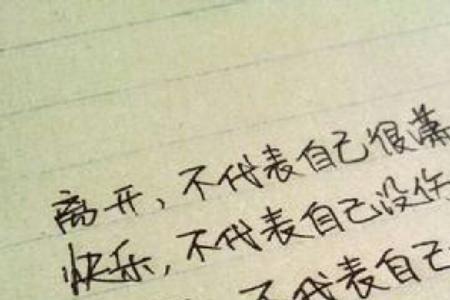 离开，不代表自己很潇
快乐，不代表自己没伤
不代表自己